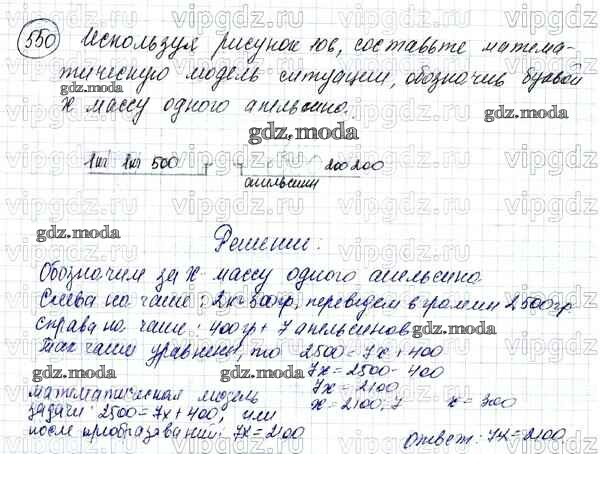 550 Используя рисунок 106, составьте матема-
тическую модель ситуации, обозначив буквой
х массу одного апельсина.
gdz.moda gdz.moda
gdz.moda
1кг 1кг 500 200 200
апельсин
gdz.moda
Решение: gdz.moda
Обозначим за х массу одного апельсина
Слева на чаше: 2кг 500гр, переведем в граммы 2500гр
gdz.moda
справа на чаше: 400гр + 7 апельсинов
gdz.moda
Так чаши уравнены, то 2500 = 7х + 400
gdz.moda 7х = 2500 - 400 gdz.moda
математическая модель 7х = 2100
задачи: 2500 = 7х + 400, или х = 2100:7 х = 300
после преобразований: 7х = 2100 ответ: 7х = 2100.